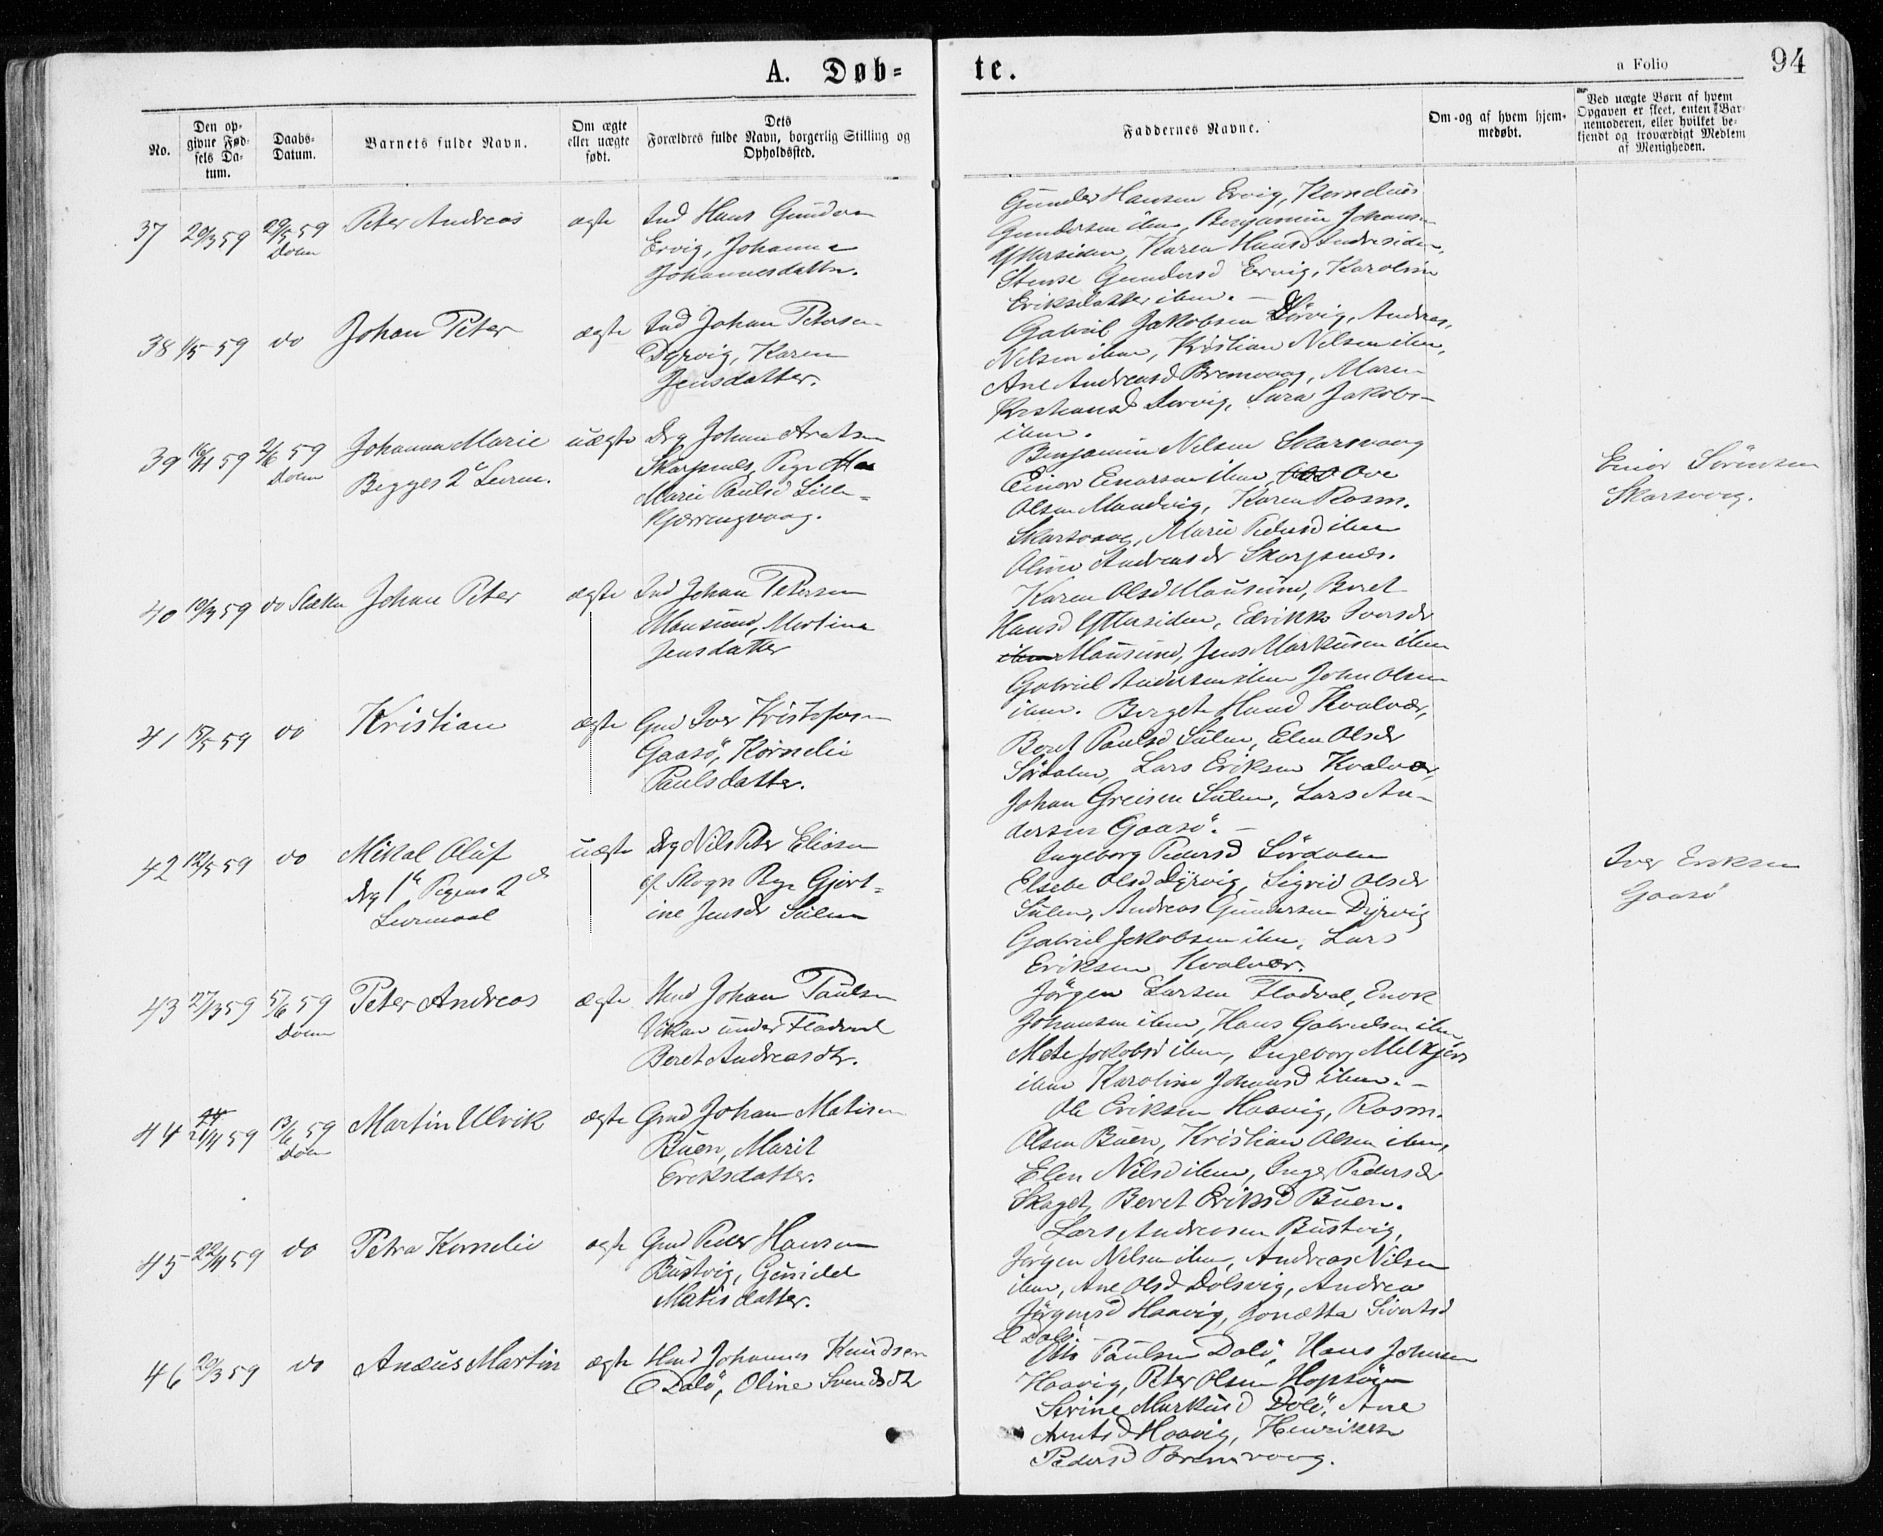 A. Døb-
te.
a Folio
94
No.
Den op-
givne Fød-
sels Da-
tum.
Daabs-
Datum.
Barnets fulde Navn.
Om ægte
eller uægte
født.
Dets
Forældres fulde Navn, borgerlig Stilling og
Opholdssted.
Faddernes Navne.
Om- og af hvem hjem-
medøbt.
Ved uægte Børn af hvem
Opgaven er skeet, enten Bar-
nemoderen, eller hvilket be-
kjendt og troværdigt Medlem
af Menigheden.
37 20/3 59 29/5 59 Peter Andreas ægte Ind Hans Gunders
Ervig, Johanna
Johannesdatter.
Gunder Hansen Ervig, Kornelius
Gundersen ibm, Benjamin Johans
Yttersiden, Karen Hansd Indresiden,
Stense Gundersd Ervig, Karoline
Eriksdatter ibm. —
38 1/5 59 do Johan Peter ægte Ind Johan Petersen
Dyrvig, Karen
Jensdatter.
Gabriel Jakobsen Dyrvig, Andreas
Nilsen ibm, Kristian Nilsen ibm,
Ane Andreasd Bremvaag, Maren
Kristiansd Dyrvig, Sara Jakobs-
ibm.
39 59 2/6 59 Johanna Marie uægte Drg Johan
Begges 2d Leierm.
Skarpnes, Pige
Marie Paulsd Lille-
Kjærringvaag.
Benjamin Nilsen Skarsvaag
Einar Einarsen ibm, Ove
Olsen Mandvig, Karen Rasm.
Skarsvaag, Marie Pedersd ibm
Oline Andreasdr Skarpnes.
Einar Sörensen
Skarsvaag.
40 19/3 59 do Johan Peter ægte Ind Johan Petersen
Mausund, Martina
Jensdatter
Karen Olsd Mausund, Beret
Hansd Yttersiden, Edrikke Iversdr
Mausund, Jens Markusen ibm
Gabriel Andersen ibm John Olsen
ibm.
41 15/5 59 do Kristian ægte Gmd Iver Kristofers
Gaasö, Kornelia
Paulsdatter.
Berget Hansd Kvalvær,
Beret Paulsd Sulen, Elen Olsdr
Sördalen, Lars Eriksen Kvalvær,
Johan Greisen Sulen, Lars An-
dersen Gaasö. —
42 12/5 59 do Mikal Oluf uægte Drg Nils Peter Eliasen
Drg 1ste Pigens 2det
Leiermaal
af Skogn Pige Gjert-
ine Jensdr Sulen
Ingeborg Pedersd Sördalen
Elsebe Olsd Dyrvig, Sigrid Olsdr
Sulen, Andreas Gundersen Dyrvig
Gabriel Jakobsen ibm, Lars
Eriksen Kvalvær.
Iver Eriksen
Gaasö
43 27/3 59 5/6 59 Peter Andreas ægte Hmd Johan Paulsen
Vikan under Fladval
Beret Andreasdtr.
Jörgen Larsen Fladval, Enok
Johansen ibm, Hans Gabrielsen ibm
Mete Jakobsd ibm, Ingeborg
ibm Karoline Johansd ibm. —
44 21/4 59 13/6 59 Martin Ulvik ægte Gmd Johan Matisen
Buen, Marit
Eriksdatter.
Ole Eriksen Haavig, Rasm.
Olsen Buen, Kristian Olsen ibm,
Elen Nilsd ibm, Inger Pedersdr
Skaget, Beret Eriksd Buen.
45 22/4 59 do Petra Kornelia ægte Gmd Peder Hansen
Bustvig, Gunild
Matisdatter.
Lars Andreasen Bustvig,
Jörgen Nilsen ibm, Andreas Nilsen
ibm, Ane Olsd Dolsvig, Andrea
Jörgensd Haavig, Jonetta Sivertsd
Dolö.
46 20/3 59 do Anæus Martin ægte Hmd Johannes Knudsen
Dolö, Oline Svendsdtr
Otto Paulsen Dolö, Hans Johnsen
Haavig, Peter Olsen Hopsöyen
Serine Markusd Dolö, Ane
Arntsd Haavig, Henrikke
Pedersd Bremvaag.